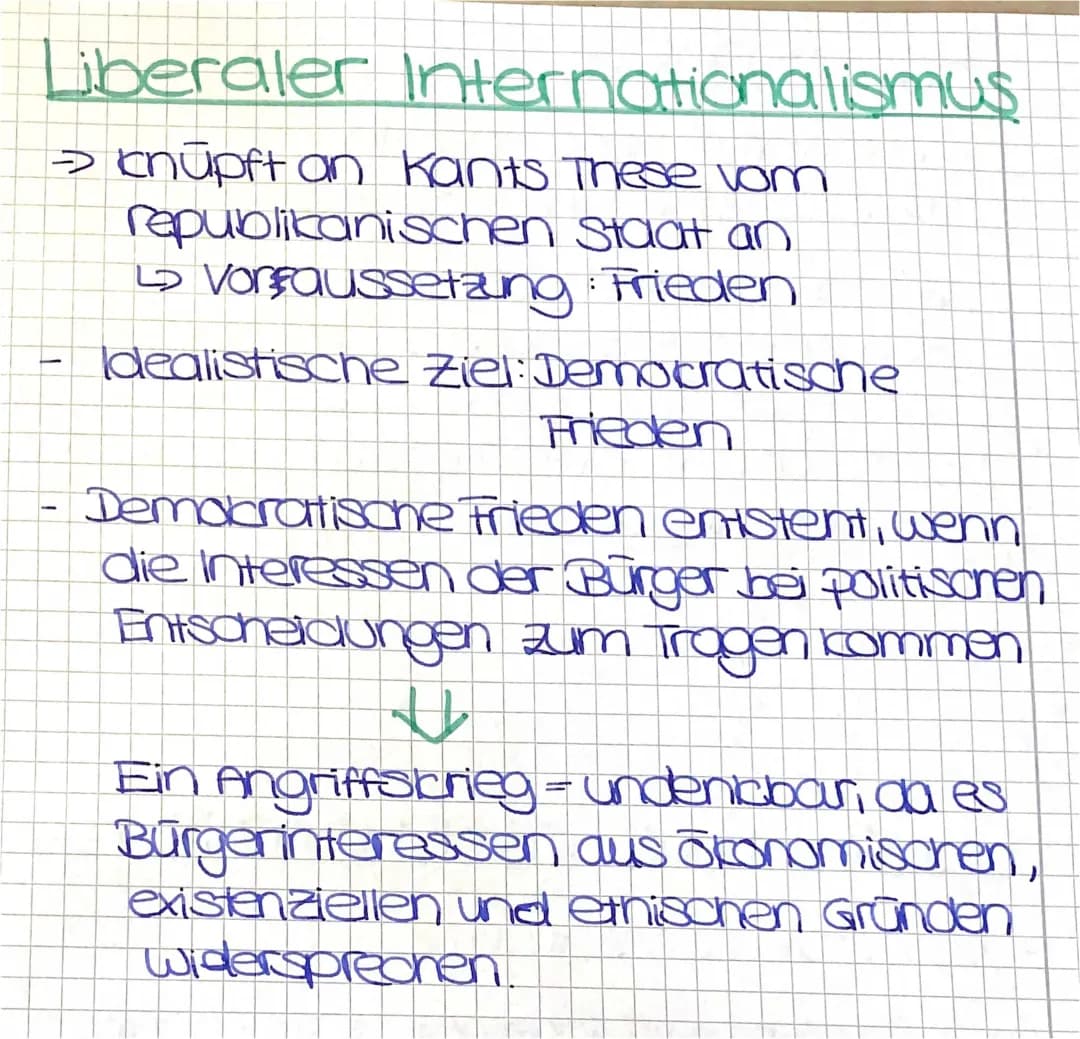 Liberaler Internationalismus
⇒ knüpft an Kants These vom
republikanischen Staat an
↳ Vorraussetzung: Frieden
- Idealistische Ziel: Demokratische
Frieden
- Demokratische Frieden entsteht, wenn
die Interessen der Bürger bei politischen
Entscheidungen zum Tragen kommen
⇓
Ein Angriffskrieg = undenkbar, da es
Bürgerinteressen aus ökonomischen,
existenziellen und ethischen Gründen
widersprechen.